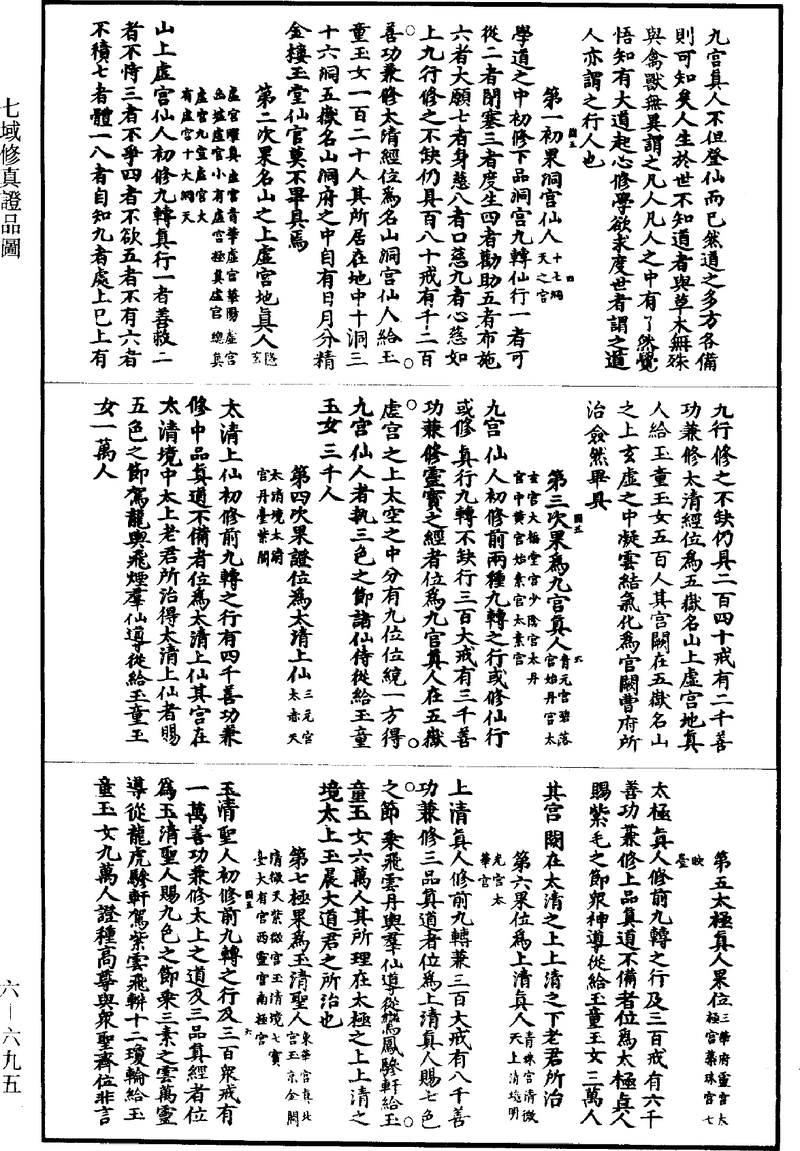 九宮真人不但登仙而已然道之多方各備
則可知矣人生於世不知道者與草木無殊
與禽獸無異謂之凡人凡人之中有了然覺
悟知有大道起心修學欲求度世者謂之道
人亦謂之行人也
第一初果洞宮仙人
學道之中初修下品洞宮九轉仙行一者可
從二者閉塞三者度生四者勸助五者布施
六者大願七者身慈八者口慈九者心慈如
上九行修之不缺仍具百八十戒有千二百
善功兼修太清經位為名山洞宮仙人給玉
童玉女一百二十人其所居在地中十洞三
十六洞五嶽名山洞府之中自有日月分精
金樓玉堂仙官莫不畢具焉
第二次果名山之上虛宮地真人
山上虛宮仙人初修九轉真行一者善救二
者不恃三者不爭四者不欲五者不有六者
不積七者體一八者自知九者處上已上有
九行修之不缺仍具二百四十戒有二千善
功兼修太清經位為五嶽名山上虛宮地真
人給玉童玉女五百人其宮闕在五嶽名山
之上玄虛之中凝雲結氣化為宮闕曹府所
治僉然畢具
第三次果為九宮真人
九宮仙人初修前兩種九轉之行或修仙行
或修真行九轉不缺行三百大戒有三千善
功兼修靈寶之經者位為九宮真人在五嶽
虛宮之上太空之中分有九位位統一方得
九宮仙人者執三色之節諸仙侍從給玉童
玉女三千人
第四次果證位為太清上仙
太清上仙初修前九轉之行有四千善功兼
修中品真道不備者位為太清上仙其宮在
太清境中太上老君所治得太清上仙者賜
五色之節駕龍輿飛煙羣仙導從給玉童玉
女一萬人
第五太極真人果位
太極真人修前九轉之行及三百戒有六千
善功兼修上品真道不備者位為太極真人
賜紫毛之節眾神導從給玉童玉女三萬人
其宮闕在太清之上上清之下老君所治
第六果位為上清真人
上清真人修前九轉兼三百大戒有八千善
功兼修三品真道者位為上清真人賜七色
之節乘飛雲丹輿羣仙導從鸞鳳驂軒給玉
童玉女六萬人其所理在太極之上上清之
境太上玉晨大道君之所治也
第七極果為玉清聖人
玉清聖人初修前九轉之行及三百眾戒有
一萬善功兼修太上之道及三品真經者位
為玉清聖人賜九色之節乘三素之雲萬靈
導從龍虎驂軒駕紫雲飛軿十二瓊輪給玉
童玉女九萬人證種高尊與眾聖齊位非言
七域修真證品圖
六—六九五